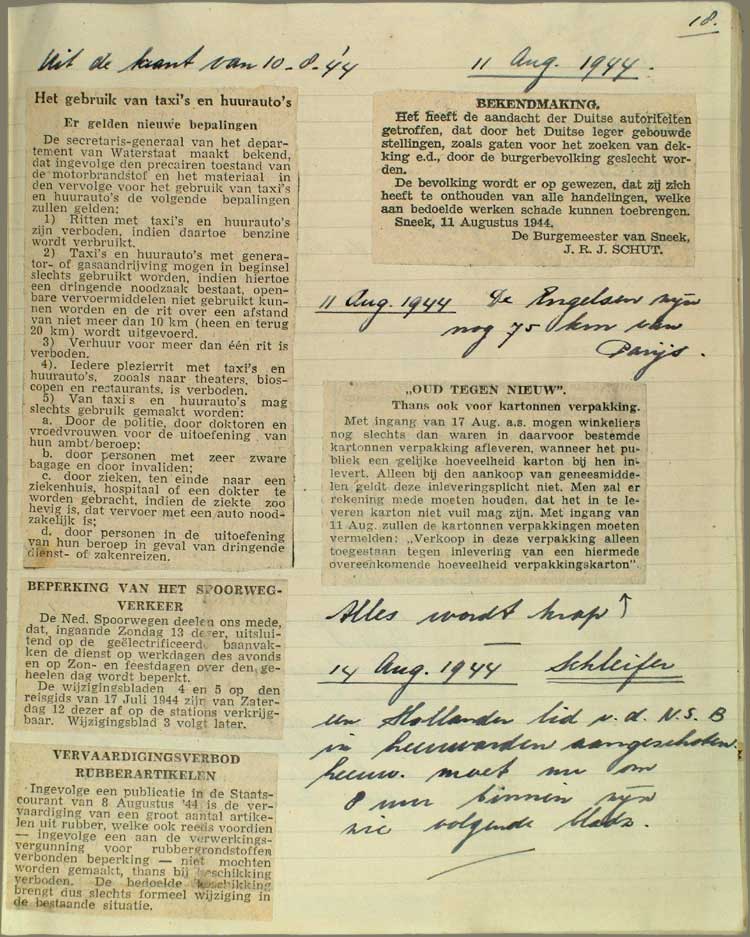 18.
Uit de krant van 10-8-'44
Het gebruik van taxi's en huurauto's
Er gelden nieuwe bepalingen
De secretaris-generaal van het depar-
tement van Waterstaat maakt bekend,
dat ingevolge den precairen toestand van
de motorbrandstof en het materiaal in
den vervolge voor het gebruik van taxi's
en huurauto's de volgende bepalingen
zullen gelden:
1) Ritten met taxi's en huurauto's
zijn verboden, indien daartoe benzine
wordt verbruikt.
2) Taxi's en huurauto's met genera-
tor- of gasaandrijving mogen in beginsel
slechts gebruikt worden, indien hiertoe
een dringende noodzaak bestaat, open-
bare vervoermiddelen niet gebruikt kun-
nen worden en de rit over een afstand
van niet meer dan 10 km (heen en terug
20 km) wordt uitgevoerd.
3) Verhuur voor meer dan één rit is
verboden.
4). Iedere plezierrit met taxi's en
huurauto's, zooals naar theaters, bios-
copen en restaurants, is verboden.
5) Van taxi's en huurauto's mag
slechts gebruik gemaakt worden:
a. Door de politie, door doktoren en
vroedvrouwen voor de uitoefening van
hun ambt/beroep;
b. door personen met zeer zware
bagage en door invaliden;
c. door zieken, ten einde naar een
ziekenhuis, hospitaal of een dokter te
worden gebracht, indien de ziekte zoo
hevig is, dat vervoer met een auto nood-
zakelijk is;
d. door personen in de uitoefening
van hun beroep in geval van dringende
dienst- of zakenreizen.
BEPERKING VAN HET SPOORWEG-
VERKEER
De Ned. Spoorwegen deelen ons mede,
dat, ingaande Zondag 13 dezer, uitslui-
tend op de geëlectrificeerde baanvak-
ken de dienst op werkdagen des avonds
en op Zon- en feestdagen over den ge-
heelen dag wordt beperkt.
De wijzigingsbladen 4 en 5 op den
reisgids van 17 Juli 1944 zijn van Zater-
dag 12 dezer af op de stations verkrijg-
baar. Wijzigingsblad 3 volgt later.
VERVAARDIGINGSVERBOD
RUBBERARTIKELEN
Ingevolge een publicatie in de Staats-
courant van 8 Augustus '44 is de ver-
vaardiging van een groot aantal artike-
len uit rubber, welke ook reeds voordien
— ingevolge een aan de verwerkings-
vergunning voor rubbergrondstoffen
verbonden beperking — niet mochten
worden gemaakt, thans bij beschikking
verboden. De bedoelde beschikking
brengt dus slechts formeel wijziging in
de bestaande situatie.
11 Aug. 1944.
BEKENDMAKING.
Het heeft de aandacht der Duitse autoriteiten
getroffen, dat door het Duitse leger gebouwde
stellingen, zoals gaten voor het zoeken van dek-
king e.d., door de burgerbevolking geslecht wor-
den.
De bevolking wordt er op gewezen, dat zij zich
heeft te onthouden van alle handelingen, welke
aan bedoelde werken schade kunnen toebrengen.
Sneek, 11 Augustus 1944.
De Burgemeester van Sneek,
J. R. J. SCHUT.
11 Aug. 1944 De Engelsen zijn
nog 75 km van
Parijs.
„OUD TEGEN NIEUW".
Thans ook voor kartonnen verpakking.
Met ingang van 17 Aug. a.s. mogen winkeliers
nog slechts dan waren in daarvoor bestemde
kartonnen verpakking afleveren, wanneer het pu-
bliek een gelijke hoeveelheid karton bij hen in-
levert. Alleen bij den aankoop van geneesmidde-
len geldt deze inleveringsplicht niet. Men zal er
rekening mede moeten houden, dat het in te le-
veren karton niet vuil mag zijn. Met ingang van
11 Aug. zullen de kartonnen verpakkingen moeten
vermelden: „Verkoop in deze verpakking alleen
toegestaan tegen inlevering van een hiermede
overeenkomende hoeveelheid verpakkingskarton".
Alles wordt krap ↑
14 Aug. 1944 Schleifer
een Hollander lid v. d. N.S.B
in Leeuwarden aangeschoten.
Leeuw. moet nu om
8 uur binnen zijn
zie volgende bladz.